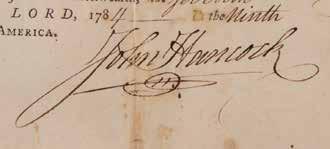 LORD, 1784 the Ninth
AMERICA.
John Hancock